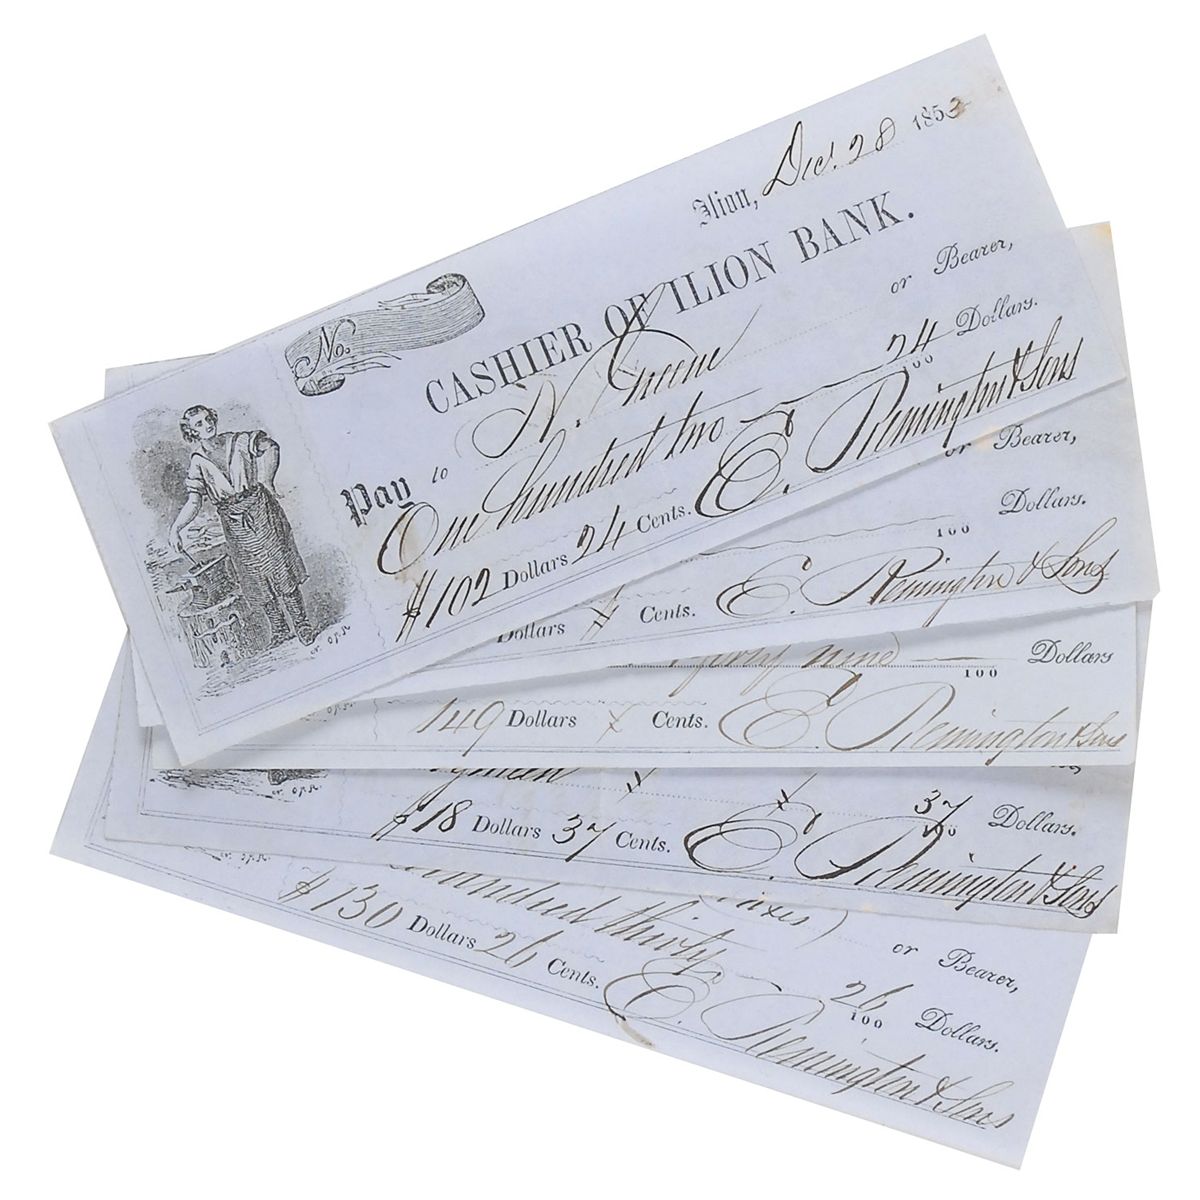 Ilion, Dec. 28 1853
No.
CASHIER OF ILION BANK.
Pay to N. Greene or Bearer,
One hundred two 24/100 Dollars.
$102 Dollars 24 Cents. E. Remington & Sons
or Bearer,
100 Dollars.
Dollars Cents. E. Remington & Sons
forty nine 100 Dollars
149 Dollars Cents. E. Remington & Sons
37/100 Dollars.
$18 Dollars 37 Cents. E. Remington & Sons
Taxes) or Bearer,
hundred thirty 26/100 Dollars.
$130 Dollars 26 Cents. E. Remington & Sons